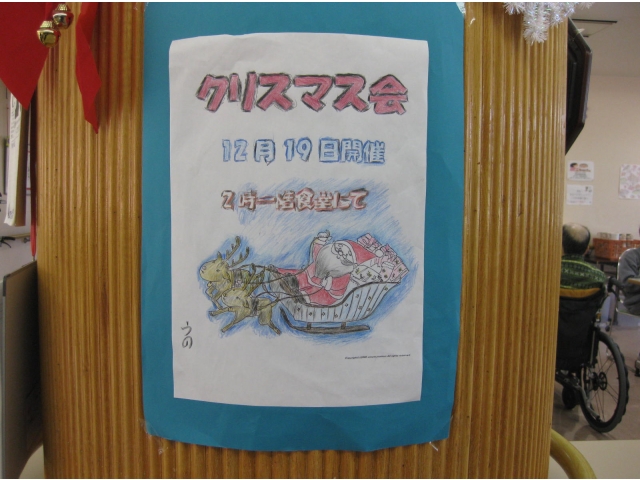 クリスマス会
12月19日開催
2月一階食堂にて
うの